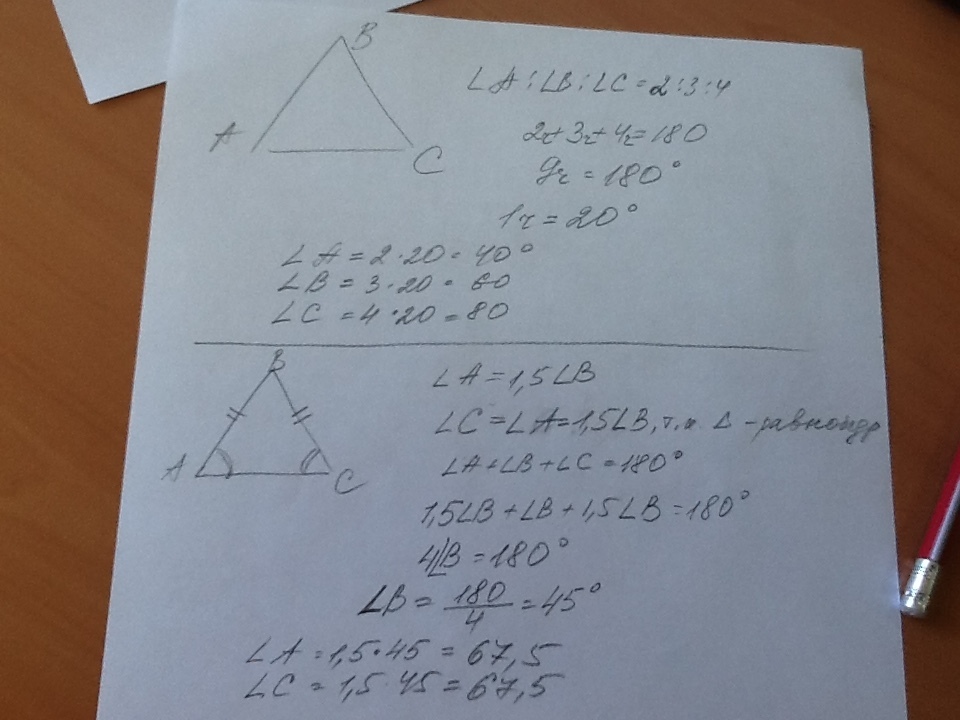 B
A
C
∠A:∠B:∠C=2:3:4
2x+3x+4x=180
9x=180°
1x=20°
∠A=2·20=40°
∠B=3·20=60
∠C=4·20=80
B
A
C
∠A=1,5∠B
∠C=∠A=1,5∠B, т.к. Δ-равнобдр
∠A+∠B+∠C=180°
1,5∠B+∠B+1,5∠B=180°
4∠B=180°
∠B=180/4=45°
∠A=1,5·45=67,5
∠C=1,5·45=67,5